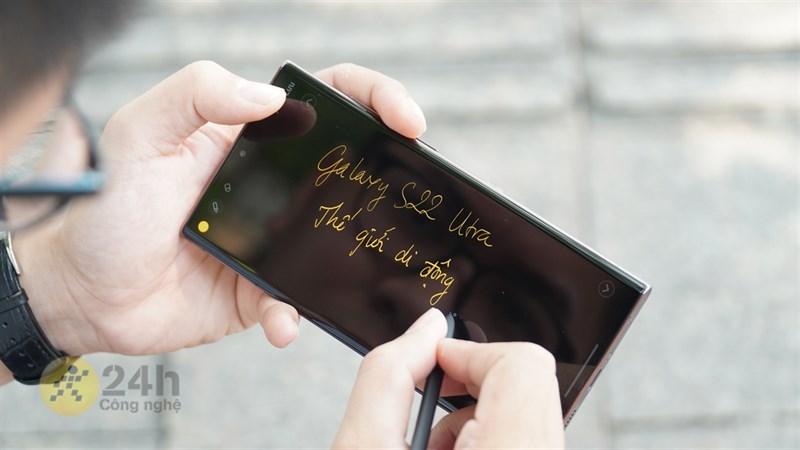 Galaxy S22 Utra
Thế giới di động
24h
Công nghệ